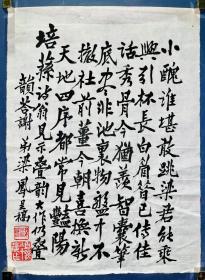 小醜誰堪敢跳梁君能乘
興引杯長白眉昔已傳佳
話秀骨今猶羨智囊筆
底本非池裏物盤中不
撤社前薑今朝喜換新
天地四序都常見豔陽
培蓀詩翁見示疊韻大作仍疊
韻答謝 弟梁風呈稿